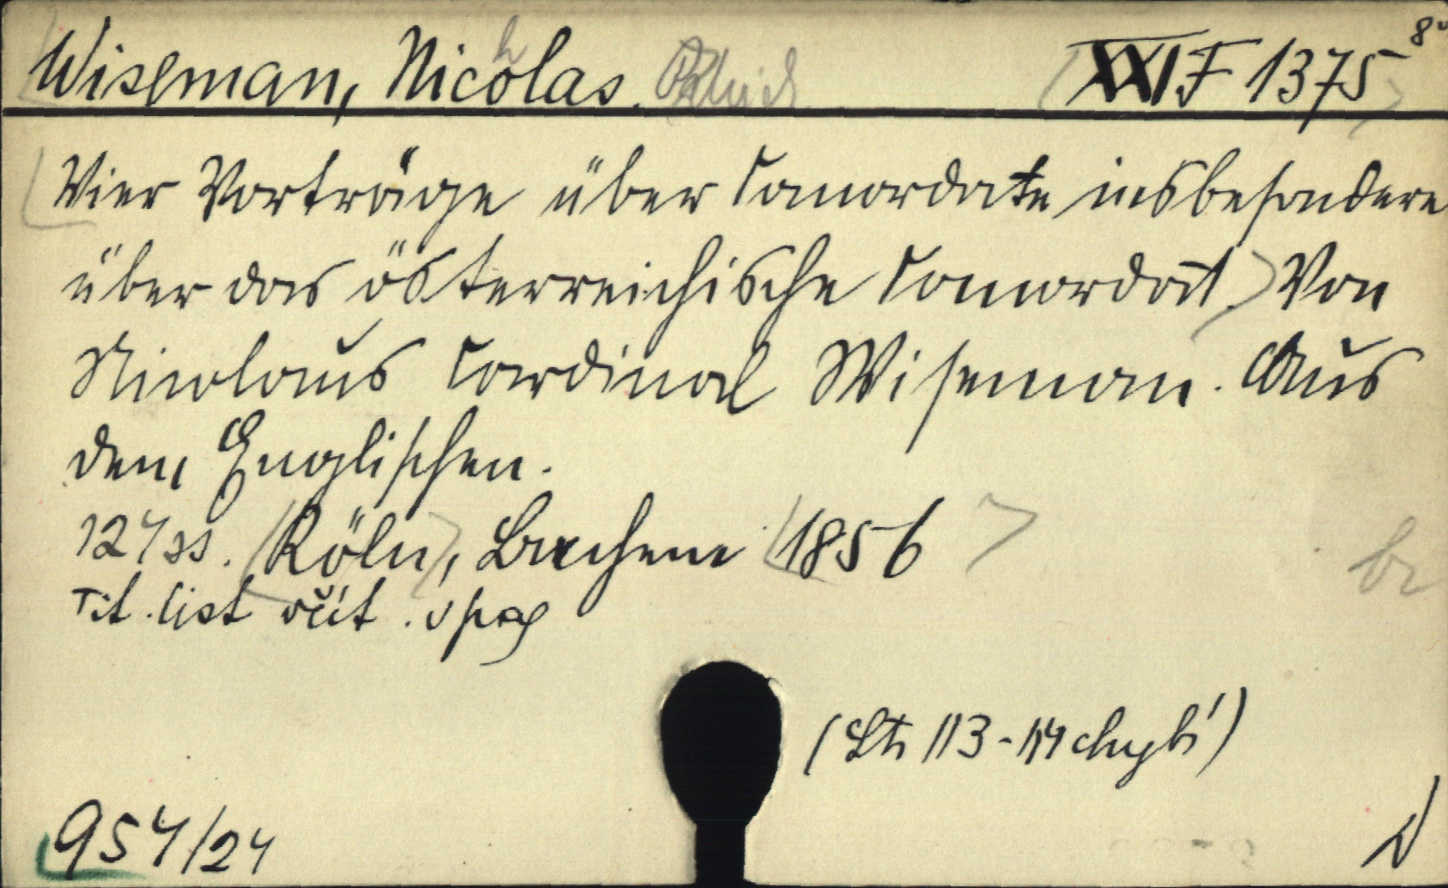 Wiseman, Nicholas XXI F 1375 8°
Vier Vorträge über Concordate insbesondere
über das österreichische Concordat. Von
Nicolaus Cardinal Wiseman. Aus
dem Englischen.
124 ss. Köln, Bachem 1856
Tit. list včít. v pag
(Str 113-114 chybí)
954/24